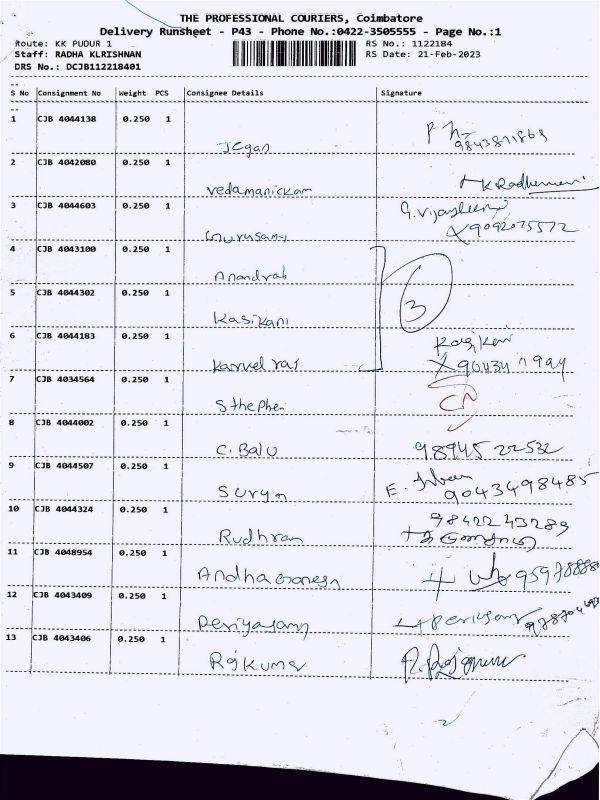 THE PROFESSIONAL COURIERS, Coimbatore
Delivery Runsheet - P43 - Phone No.:0422-3505555 - Page No.:1
Route: KK PUDUR 1 RS No.: 1122184
Staff: RADHA KLRISHNAN RS Date: 21-Feb-2023
DRS No.: DCJB112218401
S No Consignment No Weight PCS Consignee Details Signature
1 CJB 4044138 0.250 1
Jegan
2 CJB 4042080 0.250 1
Vedamanickam
3 CJB 4044603 0.250 1
Gurusamy 9092075572
4 CJB 4043100 0.250 1
5 CJB 4044302 0.250 1 3
Kasikani
6 CJB 4044183 0.250 1
Karvelraj
7 CJB 4034564 0.250 1
Sthephen
8 CJB 4044002 0.250 1
C. Balu 98945 22532
9 CJB 4044507 0.250 1
Surya 9043498485
10 CJB 4044324 0.250 1 98422 43289
Rudhran
11 CJB 4048954 0.250 1
12 CJB 4043409 0.250 1
Periyasamy
13 CJB 4043406 0.250 1
Rajkumar